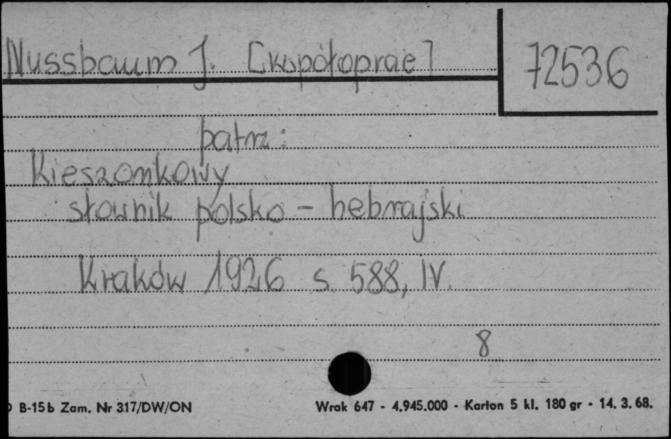 Nussbaum J. [współoprac]
72536
patrz:
Kieszonkowy
słownik polsko - hebrajski
Kraków 1926 s. 588, IV.
8
B-15b Zam. Nr 317/DW/ON
Wrak 647 - 4.945.000 - Karton 5 kl. 180 gr - 14. 3. 68.